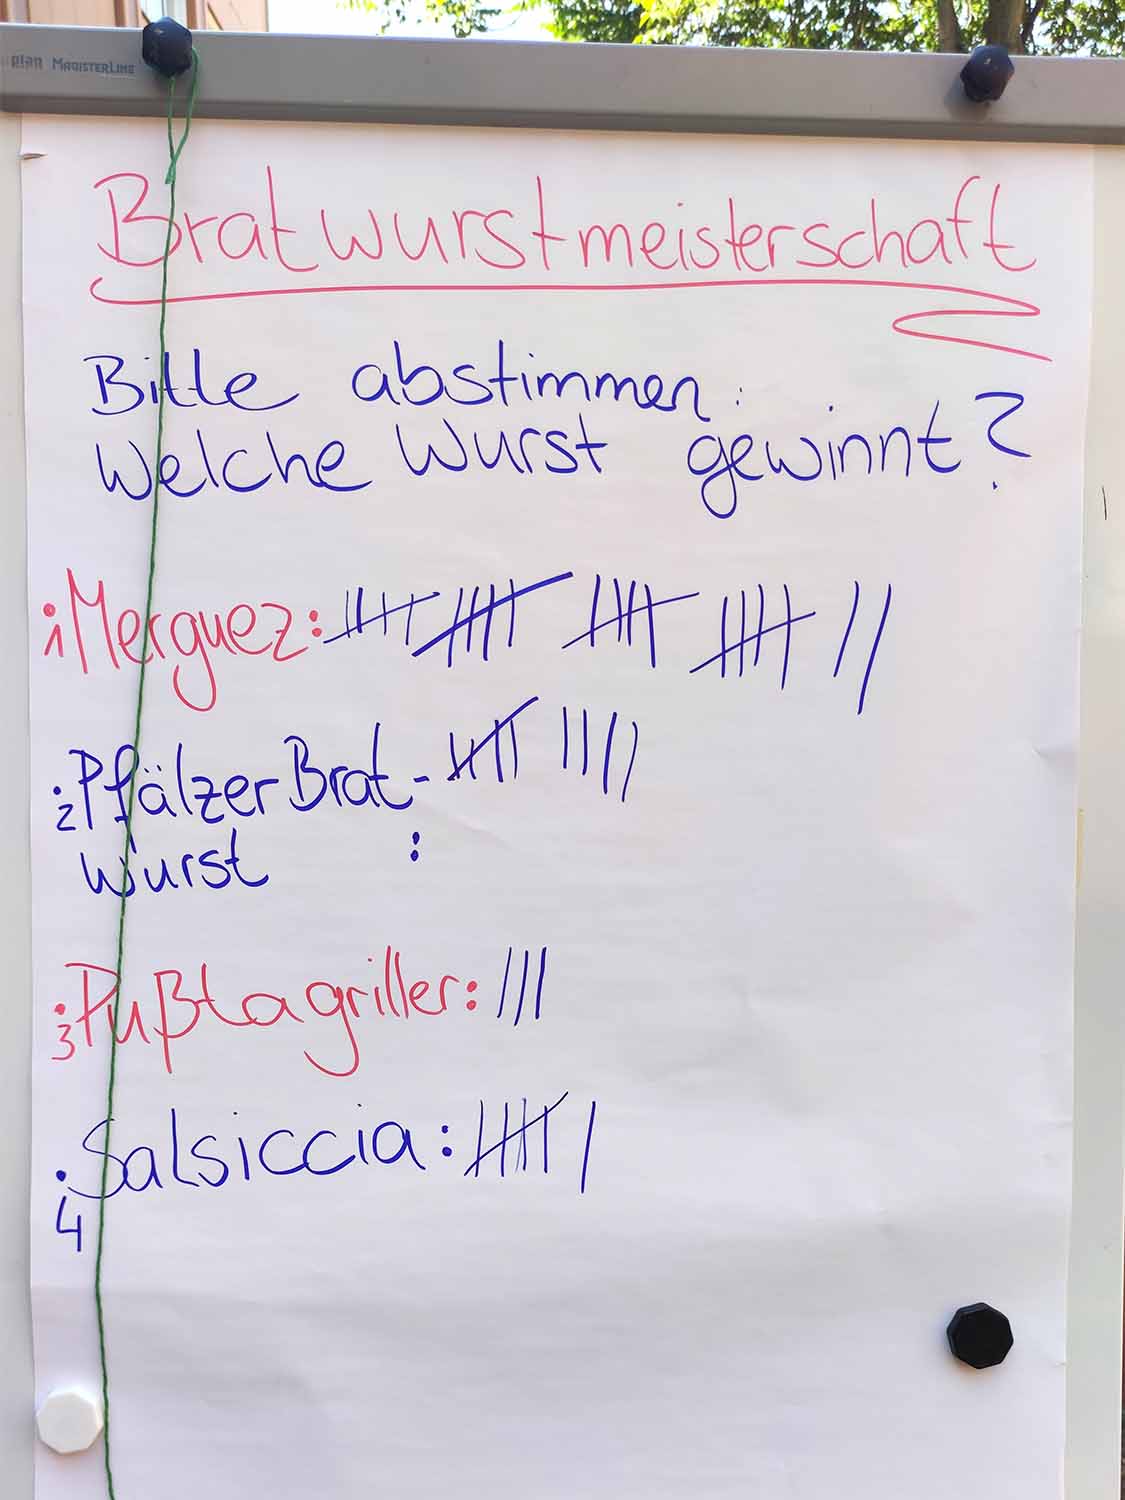 plan MAGISTERLINE
Bratwurstmeisterschaft
Bitte abstimmen:
Welche Wurst gewinnt?
1 Merguez: 卌 卌 卌 卌 ||
2 Pfälzer Brat- 卌 ||||
Wurst :
3 Pußtagriller: |||
4 Salsiccia: 卌 |